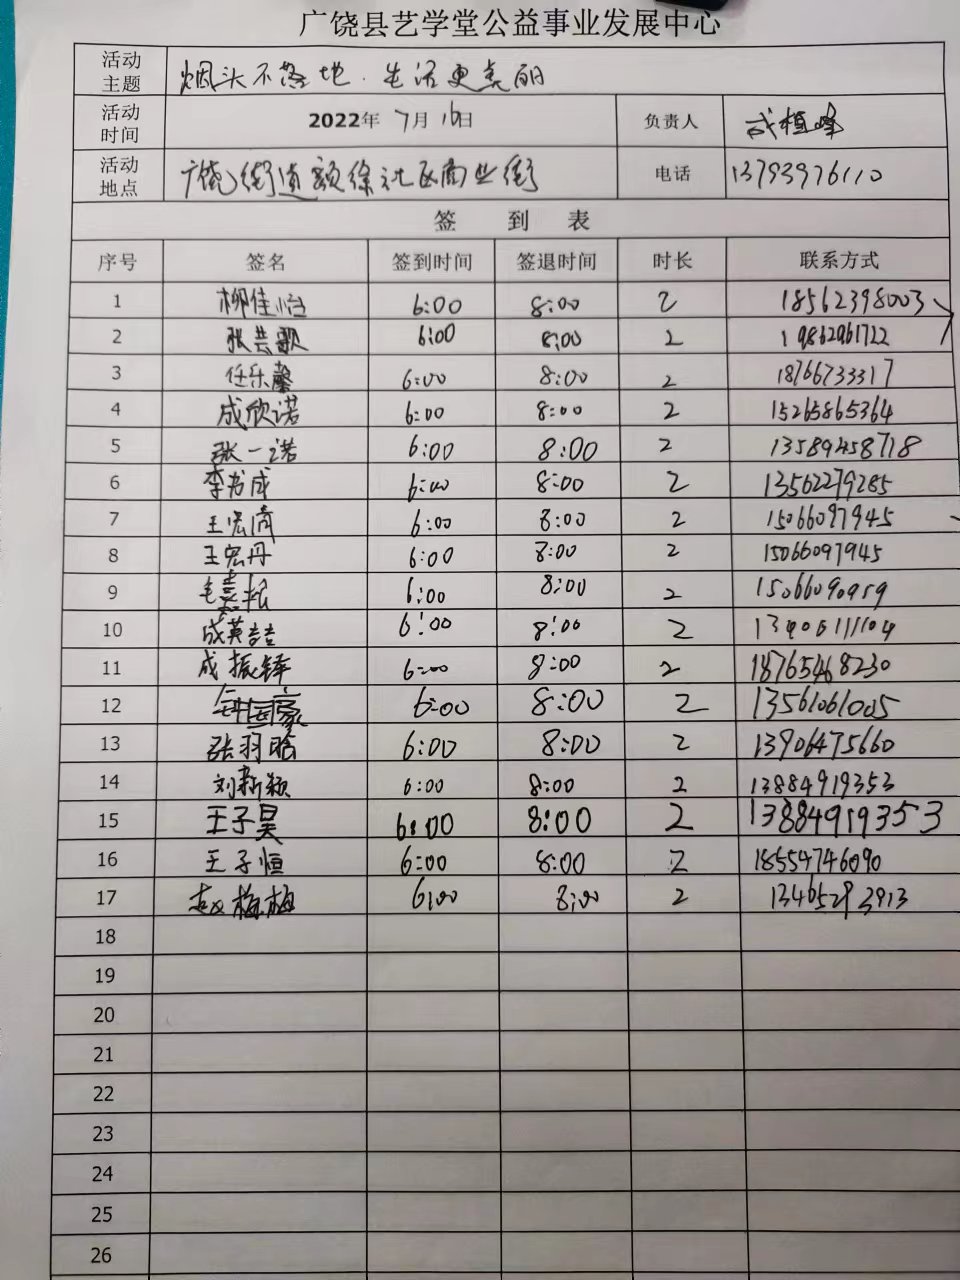 广饶县艺学堂公益事业发展中心
活动主题 烟头不落地.生活更美丽
活动时间 2022年 7月 16日 负责人 成植峰
活动地点 广饶街道颜徐社区商业街 电话 13793976110
签 到 表
序号 签名 签到时间 签退时间 时长 联系方式
1 柳佳怡 6:00 8:00 2 18562398003
2 张芸歌 6:00 8:00 2 19862961722
3 任乐馨 6:00 8:00 2 18766733317
4 成欣诺 6:00 8:00 2 15265865364
5 张一诺 6:00 8:00 2 13589458718
6 李书成 6:00 8:00 2 13562279285
7 王宏 6:00 8:00 2 15066097945
8 王宏丹 6:00 8:00 2 15066097945
9 6:00 8:00 2 15066090959
10 成英喆 6:00 8:00 2
11 成振铎 6:00 8:00 2 18765468230
12 6:00 8:00 2 13561061005
13 张羽晗 6:00 8:00 2 13906475660
14 刘新颖 6:00 8:00 2 13884919353
15 王子昊 6:00 8:00 2 13884919353
16 王子恒 6:00 8:00 2 18554746090
17 赵梅梅 6:00 8:00 2 13465293913
18
19
20
21
22
23
24
25
26